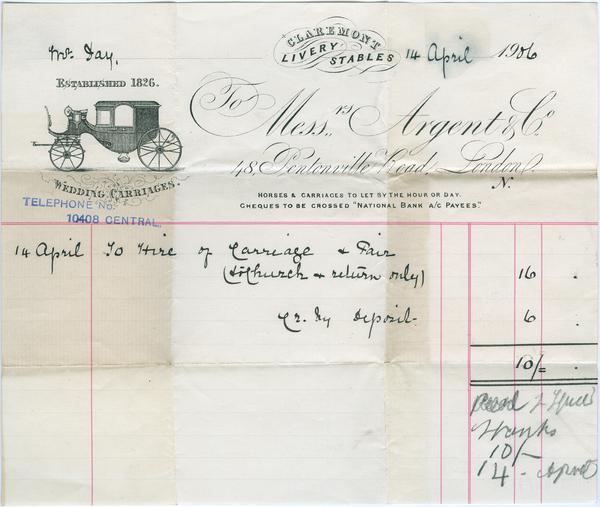 CLAREMONT
LIVERY STABLES
Mr. Day.
14 April 1906
ESTABLISHED 1826.
To Messrs Argent & Co.
48, Pentonville Road, London,
N.
WEDDING CARRIAGES.
HORSES & CARRIAGES TO LET BY THE HOUR OR DAY.
CHEQUES TO BE CROSSED "NATIONAL BANK A/C PAYEES."
TELEPHONE No.
10408 CENTRAL.
14 April To Hire of Carriage & Pair
(to Church & return only) 16 .
Cr. By Deposit 6 .
10/= .
Recd
Thanks
10/-
14 - April